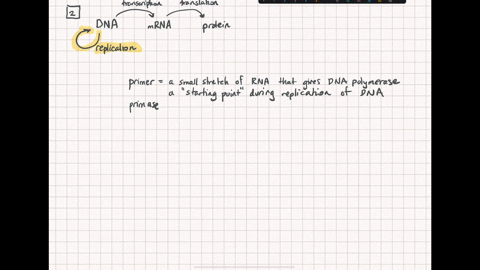 transcription translation
2
DNA mRNA protein
replication
primer = a small stretch of RNA that gives DNA polymerase
a "starting point" during replication of DNA
primase